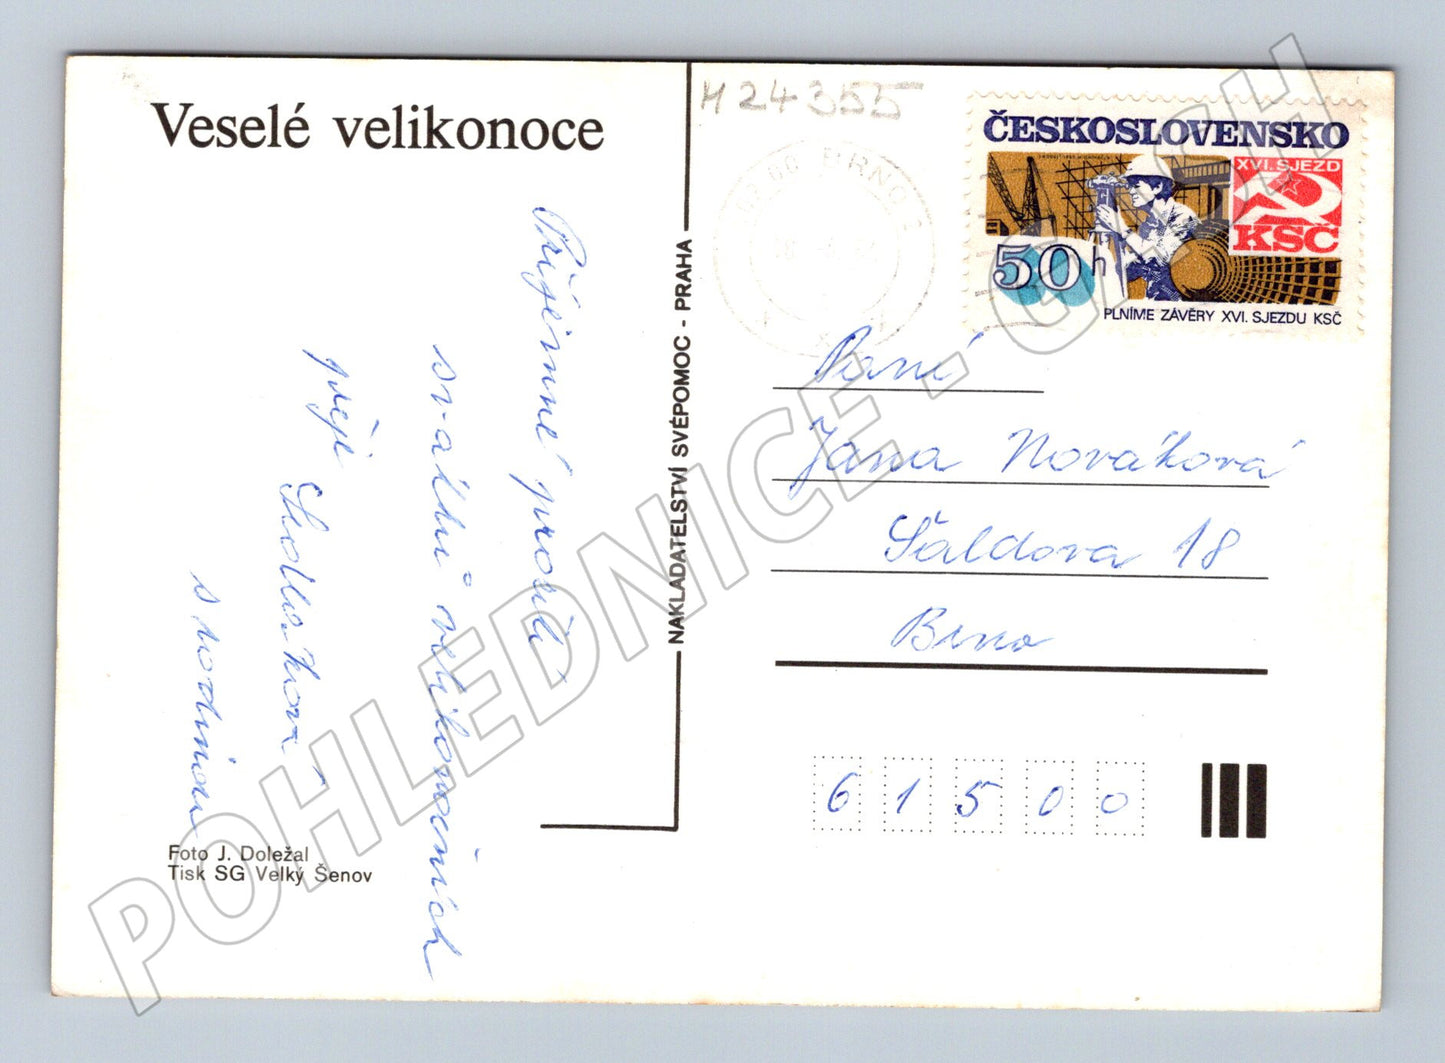 Veselé velikonoce
Příjemné prožití
svátků velikonočních
přeje
Sedláková
s rodinou
Foto J. Doležal
Tisk SG Velký Šenov
NAKLADATELSTVÍ SVÉPOMOC - PRAHA
M 24355
BRNO 2
ČESKOSLOVENSKO
XVI. SJEZD
KSČ
50 h
PLNÍME ZÁVĚRY XVI. SJEZDU KSČ
Paní
Jana Nováková
Šaldova 18
Brno
6 1 5 0 0
POHLEDNICE - CASH